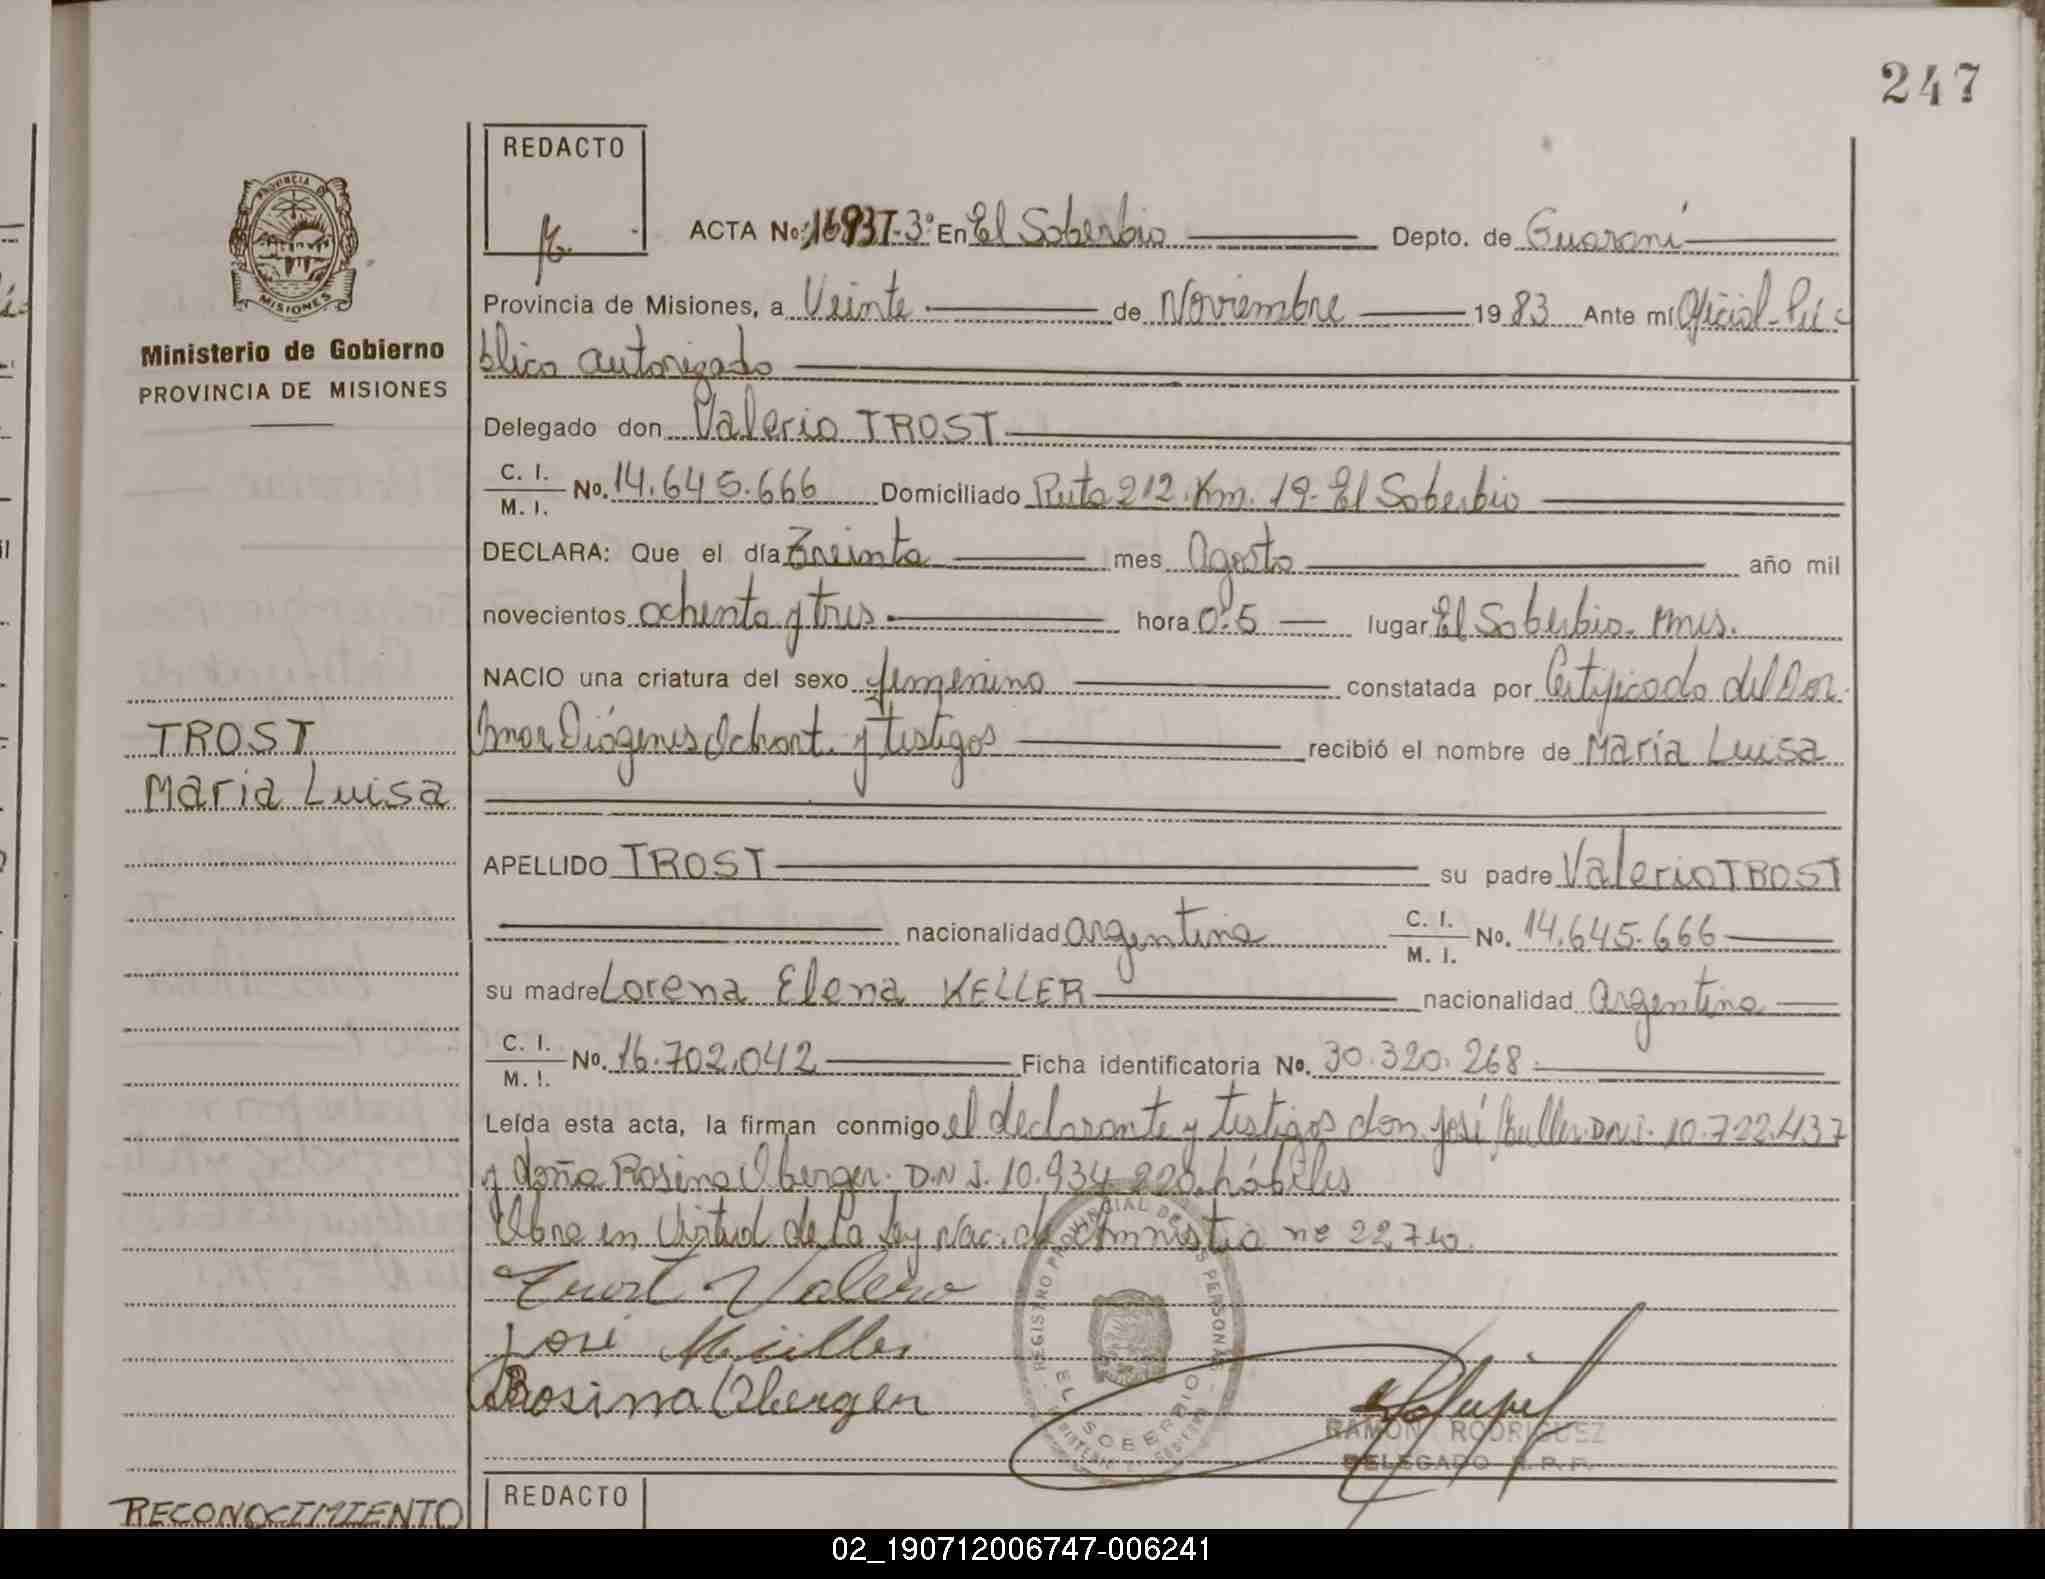 247
REDACTO
ACTA No. 16937-3º En El Soberbio Depto. de Guaraní
Provincia de Misiones, a Veinte de Noviembre 1983 Ante mí Oficial Pú
blico autorizado
Ministerio de Gobierno
PROVINCIA DE MISIONES
Delegado don Valerio TROST
C. I.
M. I.
No. 14.645.666 Domiciliado Ruta 212. Km. 19- El Soberbio
DECLARA: Que el día Treinta mes Agosto año mil
novecientos ochenta y tres hora 0:5 lugar El Soberbio. Mnes.
NACIO una criatura del sexo femenino constatada por Certificado del Dor.
Omar Diógenes y testigos recibió el nombre de María Luisa
TROST
María Luisa
APELLIDO TROST su padre Valerio TROST
nacionalidad argentina C. I.
M. I. No. 14.645.666
su madre Lorena Elena KELLER nacionalidad Argentina
C. I.
M. I. No. 16.702.042 Ficha identificatoria No. 30.320.268
Leída esta acta, la firman conmigo el declarante y testigos don José Muller D.N.I. 10.722.437
y doña Rosina Oberger. D.N.I. 10.934.220 hábiles
Obro en Virtud de la Ley Nac. de Amnistia nº 22.740.
Trost Valerio
José Müller
Rosina Oberger
REGISTRO PROVINCIAL DE LAS PERSONAS
EL SOBERBIO
RAMON RODRIGUEZ
DELEGADO R.P.P.
RECONOCIMIENTO
REDACTO
02_190712006747-006241